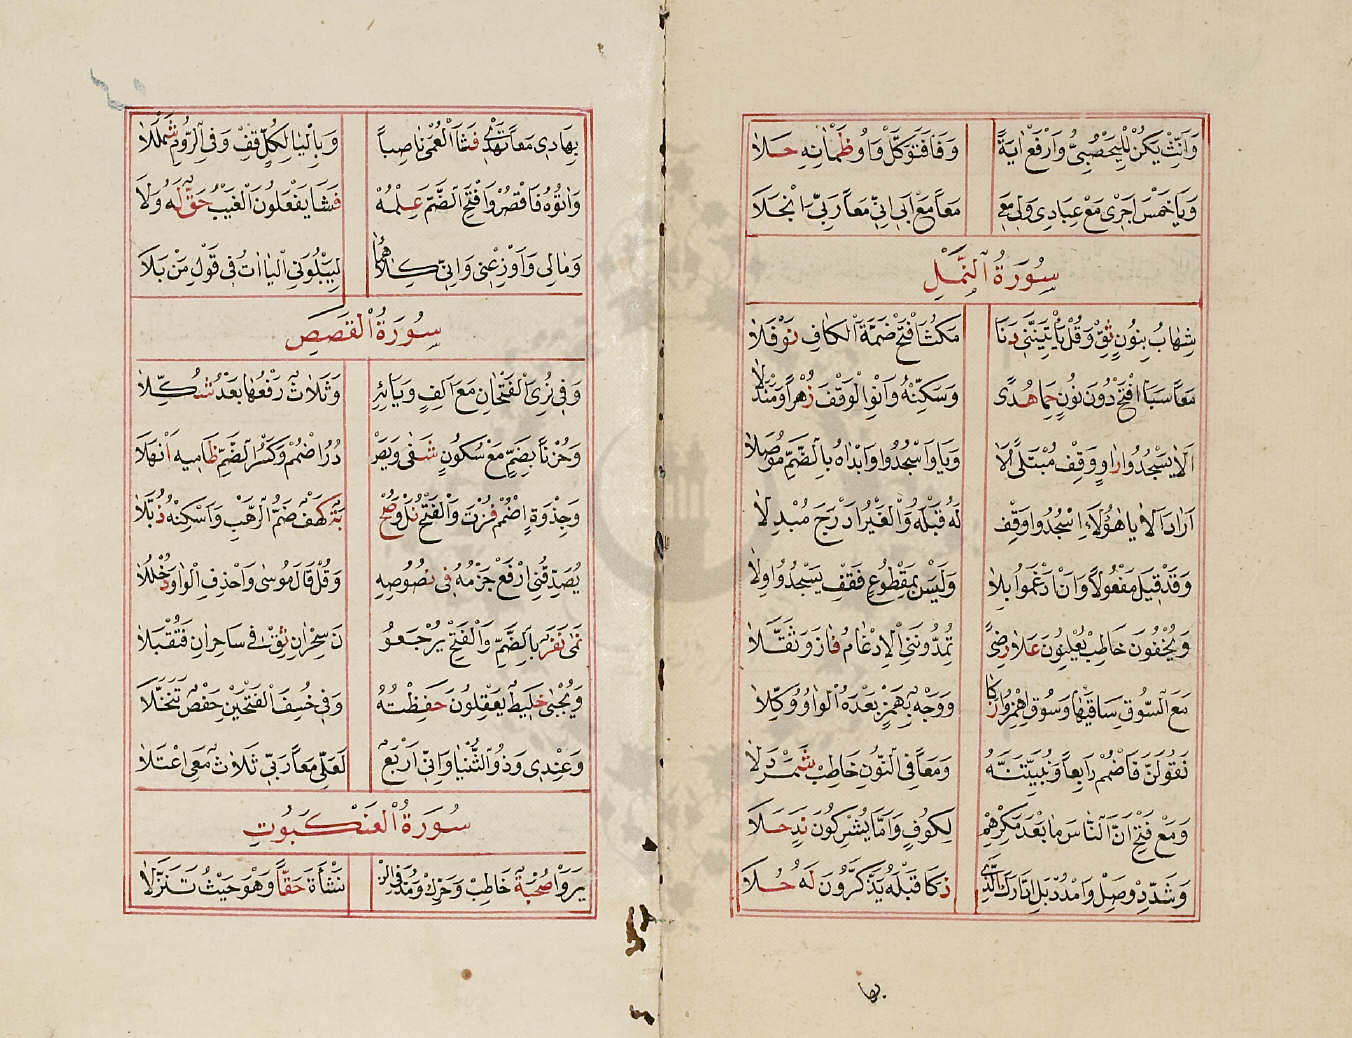 وَاَنِّثْ يَكُنْ لِلْيَحْصُبِيِّ وَارْفَعْ اٰيَةً وَفَا فَتَوَكَّلْ وَاوُ ظَمْاٰنِهِ حَلَا
وَيَا خَمْسَ اَجْرِى مَعْ عِبَادِى وَلِى مَعِى مَعاً مَعْ اَبِى اِنِّى مَعاً رَبِّىَ انْجَلَا
سُورَةُ النَّمْلِ
شِهَابُ بِنُونٍ ثِقْ وَقُلْ يَأْتِيَنَّنِى دَنَا مَكُثَ افْتَحْ ضَمَّةَ الْكَافِ نَوْفَلَا
مَعاً سَبَأَ افْتَحْ دُونَ نُونٍ حِمًا هُدًى وَسَكِّنْهُ وَانْوِ الْوَقْفَ زُهْراً وَمَنْدَلَا
اَلَا يَسْجُدُوا رَاوٍ وَقِفْ مُبْتَلًى اَلَا وَيَا وَاسْجُدُوا وَابْدَاْهُ بِالضَّمِّ مُوصِلَا
اَرَادَ اَلَا يَا هٰؤُلَاءِ اسْجُدُوا وَقِفْ لَهُ قَبْلَهُ وَالْغَيْرُ اَدْرَجَ مُبْدِلَا
وَقَدْ قِيلَ مَفْعُولاً وَاَنْ اَدْغَمُوا بِلَا وَلَيْسَ بِمَقْطُوعٍ فَقِفْ يَسْجُدُوا وِلَا
وَيُخْفُونَ خَاطِبْ يُعْلِنُونَ عَلَا رِضىً تُمِدُّونَنِى الْاِدْغَامُ فَازَ وَثَقَّلَا
مَعَ السُّوقِ سَاقَيْهَا وَسُوقِ اهْمِزُوا زَكَا وَوَجْهٌ بِهَمْزٍ بَعْدَهُ الْوَاوُ وُكِّلَا
نَقُولَنَّ فَاضْمُمْ رَابِعاً وَنُبَيِّتَنَّهُ وَمَعاً فِى النُّونِ خَاطِبْ شَمَرْدَلَا
وَمَعْ فَتْحِ اَنَّ النَّاسَ مَا بَعْدَ مَكْرِهِمْ لِكُوفٍ وَاَمَّا يُشْرِكُونَ نَدٍ حَلَا
وَشَدِّدْ وَصِلْ وَامْدُدْ بَلِ ادَّارَكَ الَّذِى ذَكَا قَبْلَهُ يَذَّكَّرُونَ لَهُ حُلَا
بهاد
بِهَادِى مَعاً تَهْدِى فَشَا الْعُمْىَ نَاصِباً وَبِالْيَا لِكُلٍّ قِفْ وَفِى الرُّومِ شَمْلَلَا
وَاٰتُوهُ فَاقْصُرْ وَافْتَحِ الضَّمَّ عِلْمُهُ فَشَا يَفْعَلُونَ الْغَيْبُ حَقٌّ لَهُ وَلَا
وَمَالِى وَاَوْزِعْنِى وَاِنِّى كِلَاهُمَا لِيَبْلُوَنِى الْيَاءَاتُ فِى قَوْلِ مَنْ بَلَا
سُورَةُ الْقَصَصِ
وَفِى نُرِىَ الْفَتْحَانِ مَعْ اَلِفٍ وَيَائِهِ وَثَلَاثٌ رَفْعُهَا بَعْدُ شُكِّلَا
وَحُزْناً بِضَمٍّ مَعْ سُكُونٍ شَفٰى وَيَصْ دُرَ اضْمُمْ وَكَسْرُ الضَّمِّ ظَامِيهِ اَنْهَلَا
وَجِذْوَةٍ اضْمُمْ فُزْتَ وَالْفَتْحُ نَلْ وَصُحْ بَةٌ كَهْفُ ضَمِّ الرَّهْبِ وَاسْكِنْهُ ذُبَّلَا
يُصَدِّقُنِى ارْفَعْ جَزْمَهُ فِى نُصُوصِهِ وَقُلْ قَالَ مُوسٰى وَاحْذِفِ الْوَاوَ دُخْلُلَا
نَمٰى نَفَرٌ بِالضَّمِّ وَالْفَتْحِ يُرْجَعُو نَ سِحْرَانِ ثِقْ فِى سَاحِرَانِ فَتُقْبَلَا
وَيُجْبٰى خَلِيطٌ يَعْقِلُونَ حَفِظْتُهُ وَفِى خُسِفَ الْفَتْحَيْنِ حَفْصٌ تَنَخَّلَا
وَعِنْدِى وَذُو الثُّنْيَا وَاِنِّى اَرْبَعٌ لَعَلِّى مَعاً رَبِّى ثَلَاثٌ مَعِى اعْتَلَا
سُورَةُ الْعَنْكَبُوتِ
يَرَوْا صُحْبَةٌ خَاطِبْ وَحَرِّكْ وَمُدَّ فِى النْ نَشْأَةِ حَقّاً وَهْوَ حَيْثُ تَنَزَّلَا